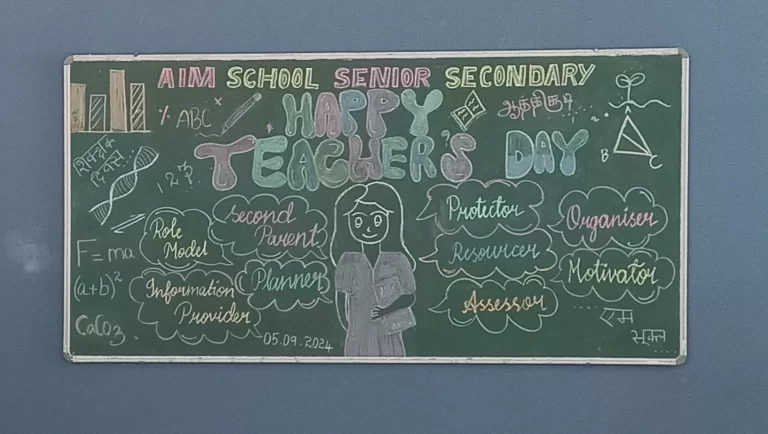 AIM SCHOOL SENIOR SECONDARY
HAPPY
TEACHER'S DAY
% ABC
शिक्षक
दिवस
1 2 3
B
C
F = ma
(a+b)²
CaCO3
Role
Model
Second
Parent
Information
Provider
Planner
Protector
Resourcer
Assessor
Organiser
Motivator
05.09.2024
एम
स्कूल